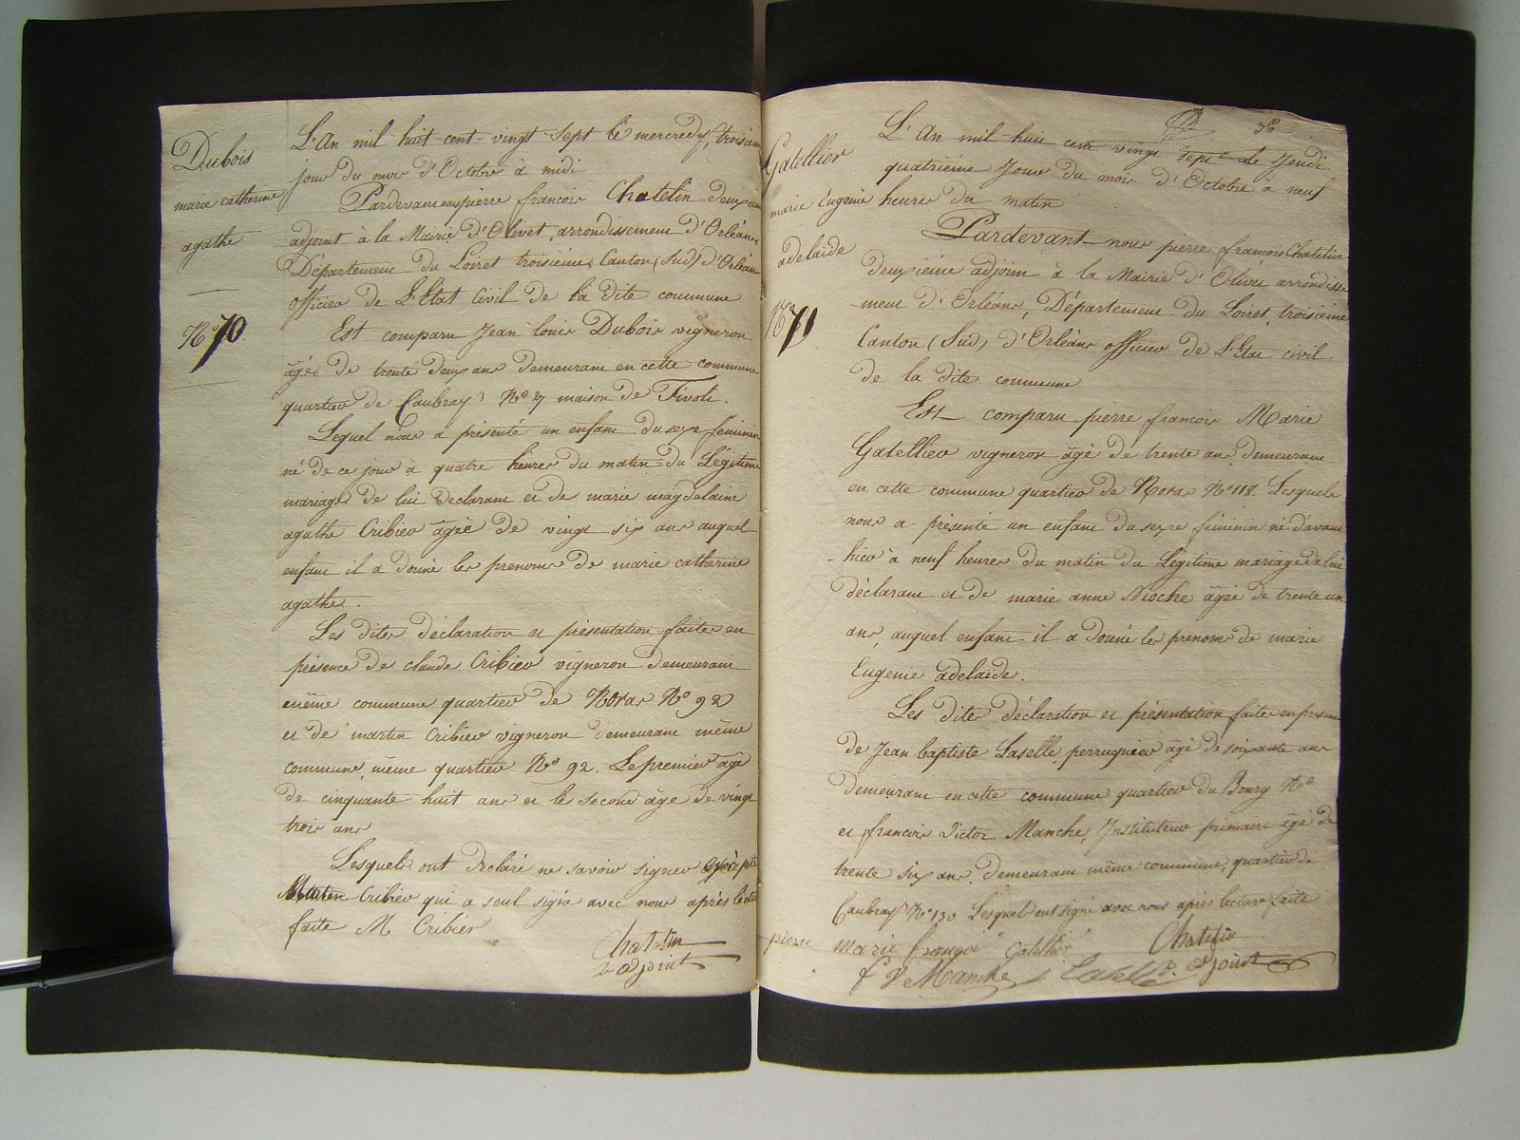 Dubois
marie catherine
agathe
No 70
L'An mil huit cent vingt sept le mercredy, troisième
jour du mois d'Octobre à midi
Pardevant nous pierre francois Chatelin deuxieme
adjoint à la Mairie d'Olivet, arrondissement d'Orléans
Département du Loiret troisieme Canton (Sud) d'Orléans
officier de L'Etat Civil de la dite commune
Est comparu Jean louis Dubois vigneron
âgé de trente deux ans demeurant en cette commune
quartier de Caubray No 87 maison de Tivoli.
Lequel nous a présenté un enfant du sexe feminin
né de ce jour à quatre heures du matin du Légitime
mariage de lui declarant et de marie magdelaine
agathe Cribier âgée de vingt six ans auquel
enfant il a donné les prenoms de marie catherine
agathe.
Les dites déclaration et présentation faites en
présence de claude Cribier vigneron demeurant
même commune quartier de Noras No 92
et de martin Cribier vigneron demeurant même
commune, même quartier No 92. Le premier âgé
de cinquante huit ans et le second âgé de vingt
trois ans
Lesquels ont declaré ne savoir signer excepté
Martin Cribier qui a seul signé avec nous après lecture
faite M Cribier
Chatelin
2 adjoint
Gatellier
marie Eugenie
adelaide
No 71
36
L'An mil huit cent vingt sept le Jeudi
quatrieme Jour du mois d'Octobre à neuf
heures du matin
Pardevant nous pierre francois Chatelin
deuxieme adjoint à la Mairie d'Olivet arrondisse
-ment d'Orléans, Département du Loiret, troisieme
Canton (Sud) d'Orléans officier de L'Etat civil
de la dite commune
Est comparu pierre francois Marie
Gatellier vigneron âgé de trente ans demeurant
en cette commune quartier de Noras No 118. Lesquels
nous a présenté un enfant du sexe féminin né d'avant
-hier à neuf heures du matin du Légitime mariage de lui
déclarant et de marie anne Nioche âgée de trente un
ans, auquel enfant il a donné les prenoms de marie
Eugenie adelaïde.
Les dites déclaration et présentation faites en présence
de Jean baptiste Laselle perruquier âgé de soixante ans
demeurant en cette commune quartier du Bourg No
et francois Victor Manche, Instituteur primaire âgé de
trente six ans, demeurant même commune, quartier de
Caubray No 130 Lesquels ont signé avec nous après lecture faite
pierre marie françois Gatellier Chatelin
f V Manche Laselle 2 adjoint